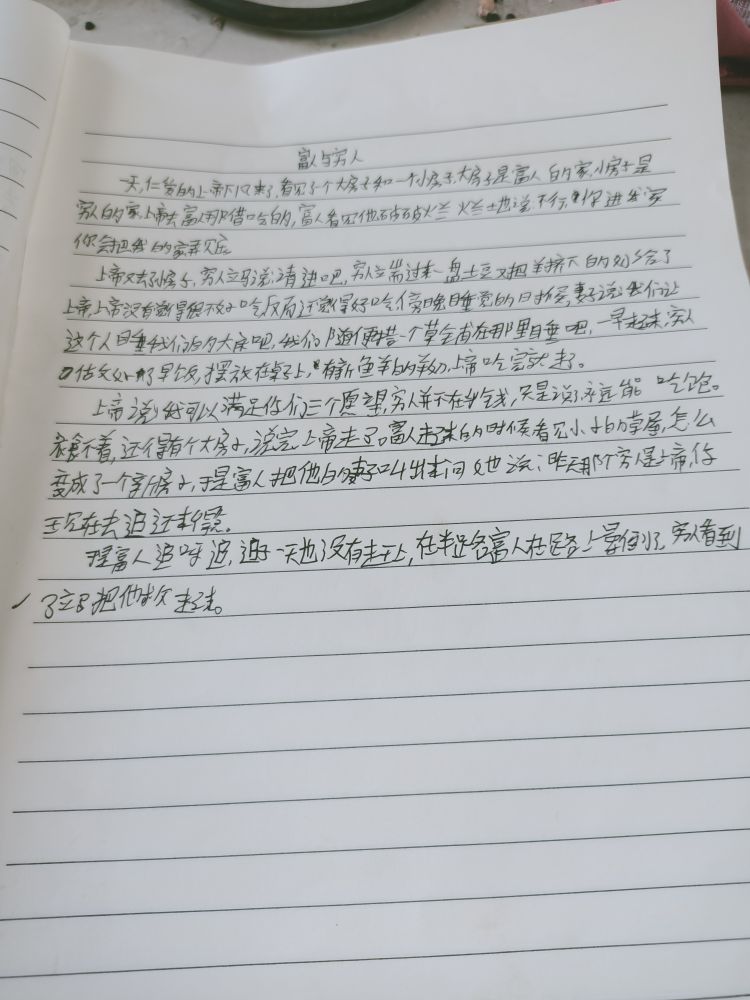 富人与穷人
一天,仁爱的上帝下凡来了,看见了个大房子和一个小房子,大房子是富人的家,小房子是
穷人的家,上帝去富人那借吃的,富人看见他破破烂烂地说:不行,你进我家
你会把我的家弄
上帝又去了小房子,穷人立马说:请进吧,穷人端过来一盘土豆又把羊挤下的奶给了
上帝,上帝没有觉得很不好吃反而还觉得好吃,傍晚睡觉的时候,妻子说:我们让
这个人睡我们的大床吧,我们随便搭一个草铺在那里睡吧,一早起来,穷人
给父做了早饭,摆放在桌子上,有新鲜的羊奶,上帝吃完就走了。
上帝说:我可以满足你们三个愿望,穷人并不在乎钱,只是说了永远能吃饱。
还得有个大房子,说完上帝走了。富人起来的时候看见小小的草屋,怎么
变成了一个新房子,于是富人把他的妻子叫出来问,她说:昨天那个穷人是上帝,你
现在去追还来得及。
富人追呀追,追了一天也没有追上,在半路富人在路上晕倒了,穷人看到
了立马把他救起来。